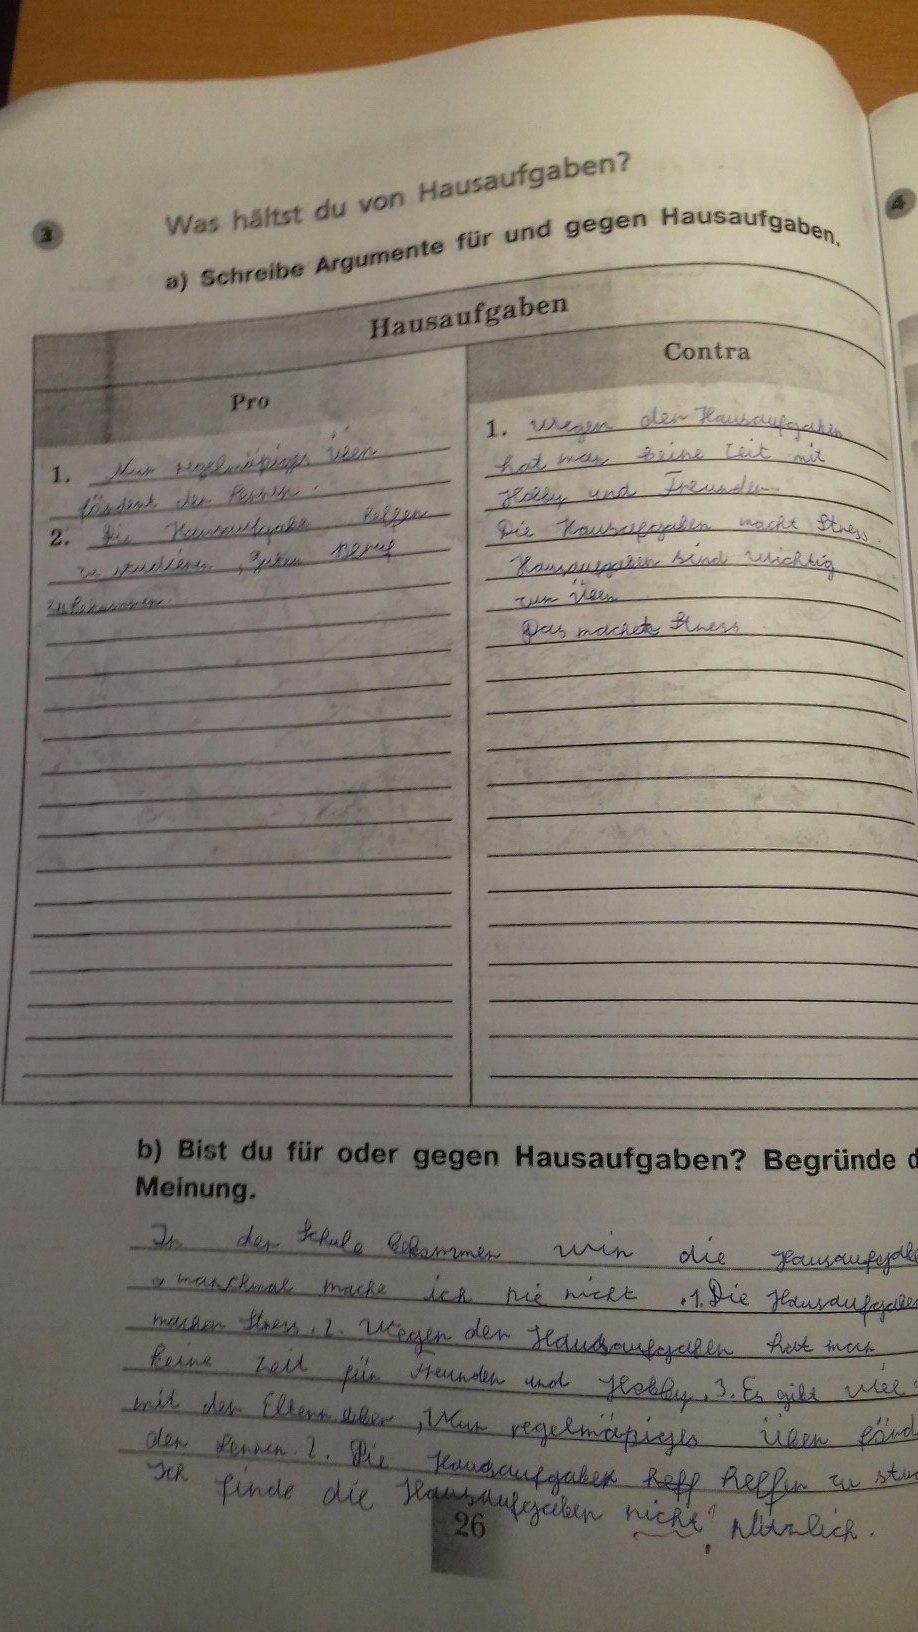 3
Was hältst du von Hausaufgaben?
4
a) Schreibe Argumente für und gegen Hausaufgaben.
Hausaufgaben
Pro
Contra
1. Nur regelmäpiges üben
fördert der Lernen.
2. Die Hausaufgabe helfen
zu studieren, guten Beruf
zu bekommen.
1. Wegen der Hausaufgaben
hat man keine Zeit mit
Hobby und Freunden
Die Hausafgaben macht Stress.
Hausaufgaben sind wichtig
zum Üben
Das machet Stress
b) Bist du für oder gegen Hausaufgaben? Begründe d
Meinung.
In der Schule bekommen wir die Hausaufgabe
manchmal mache ich sie nicht .1. Die Hausaufgaben
machen Stress. 2. Wegen der Hausaufgaben hat man
keine Zeit für Freunden und Hobby. 3. Es gibt viel
mit der Eltern. Aber, Nur regelmäpiges üben förd
den Lernen. 2. Die Hausaufgaben helfen zu stu
Ich finde die Hausaufgaben nicht nützlich.
26